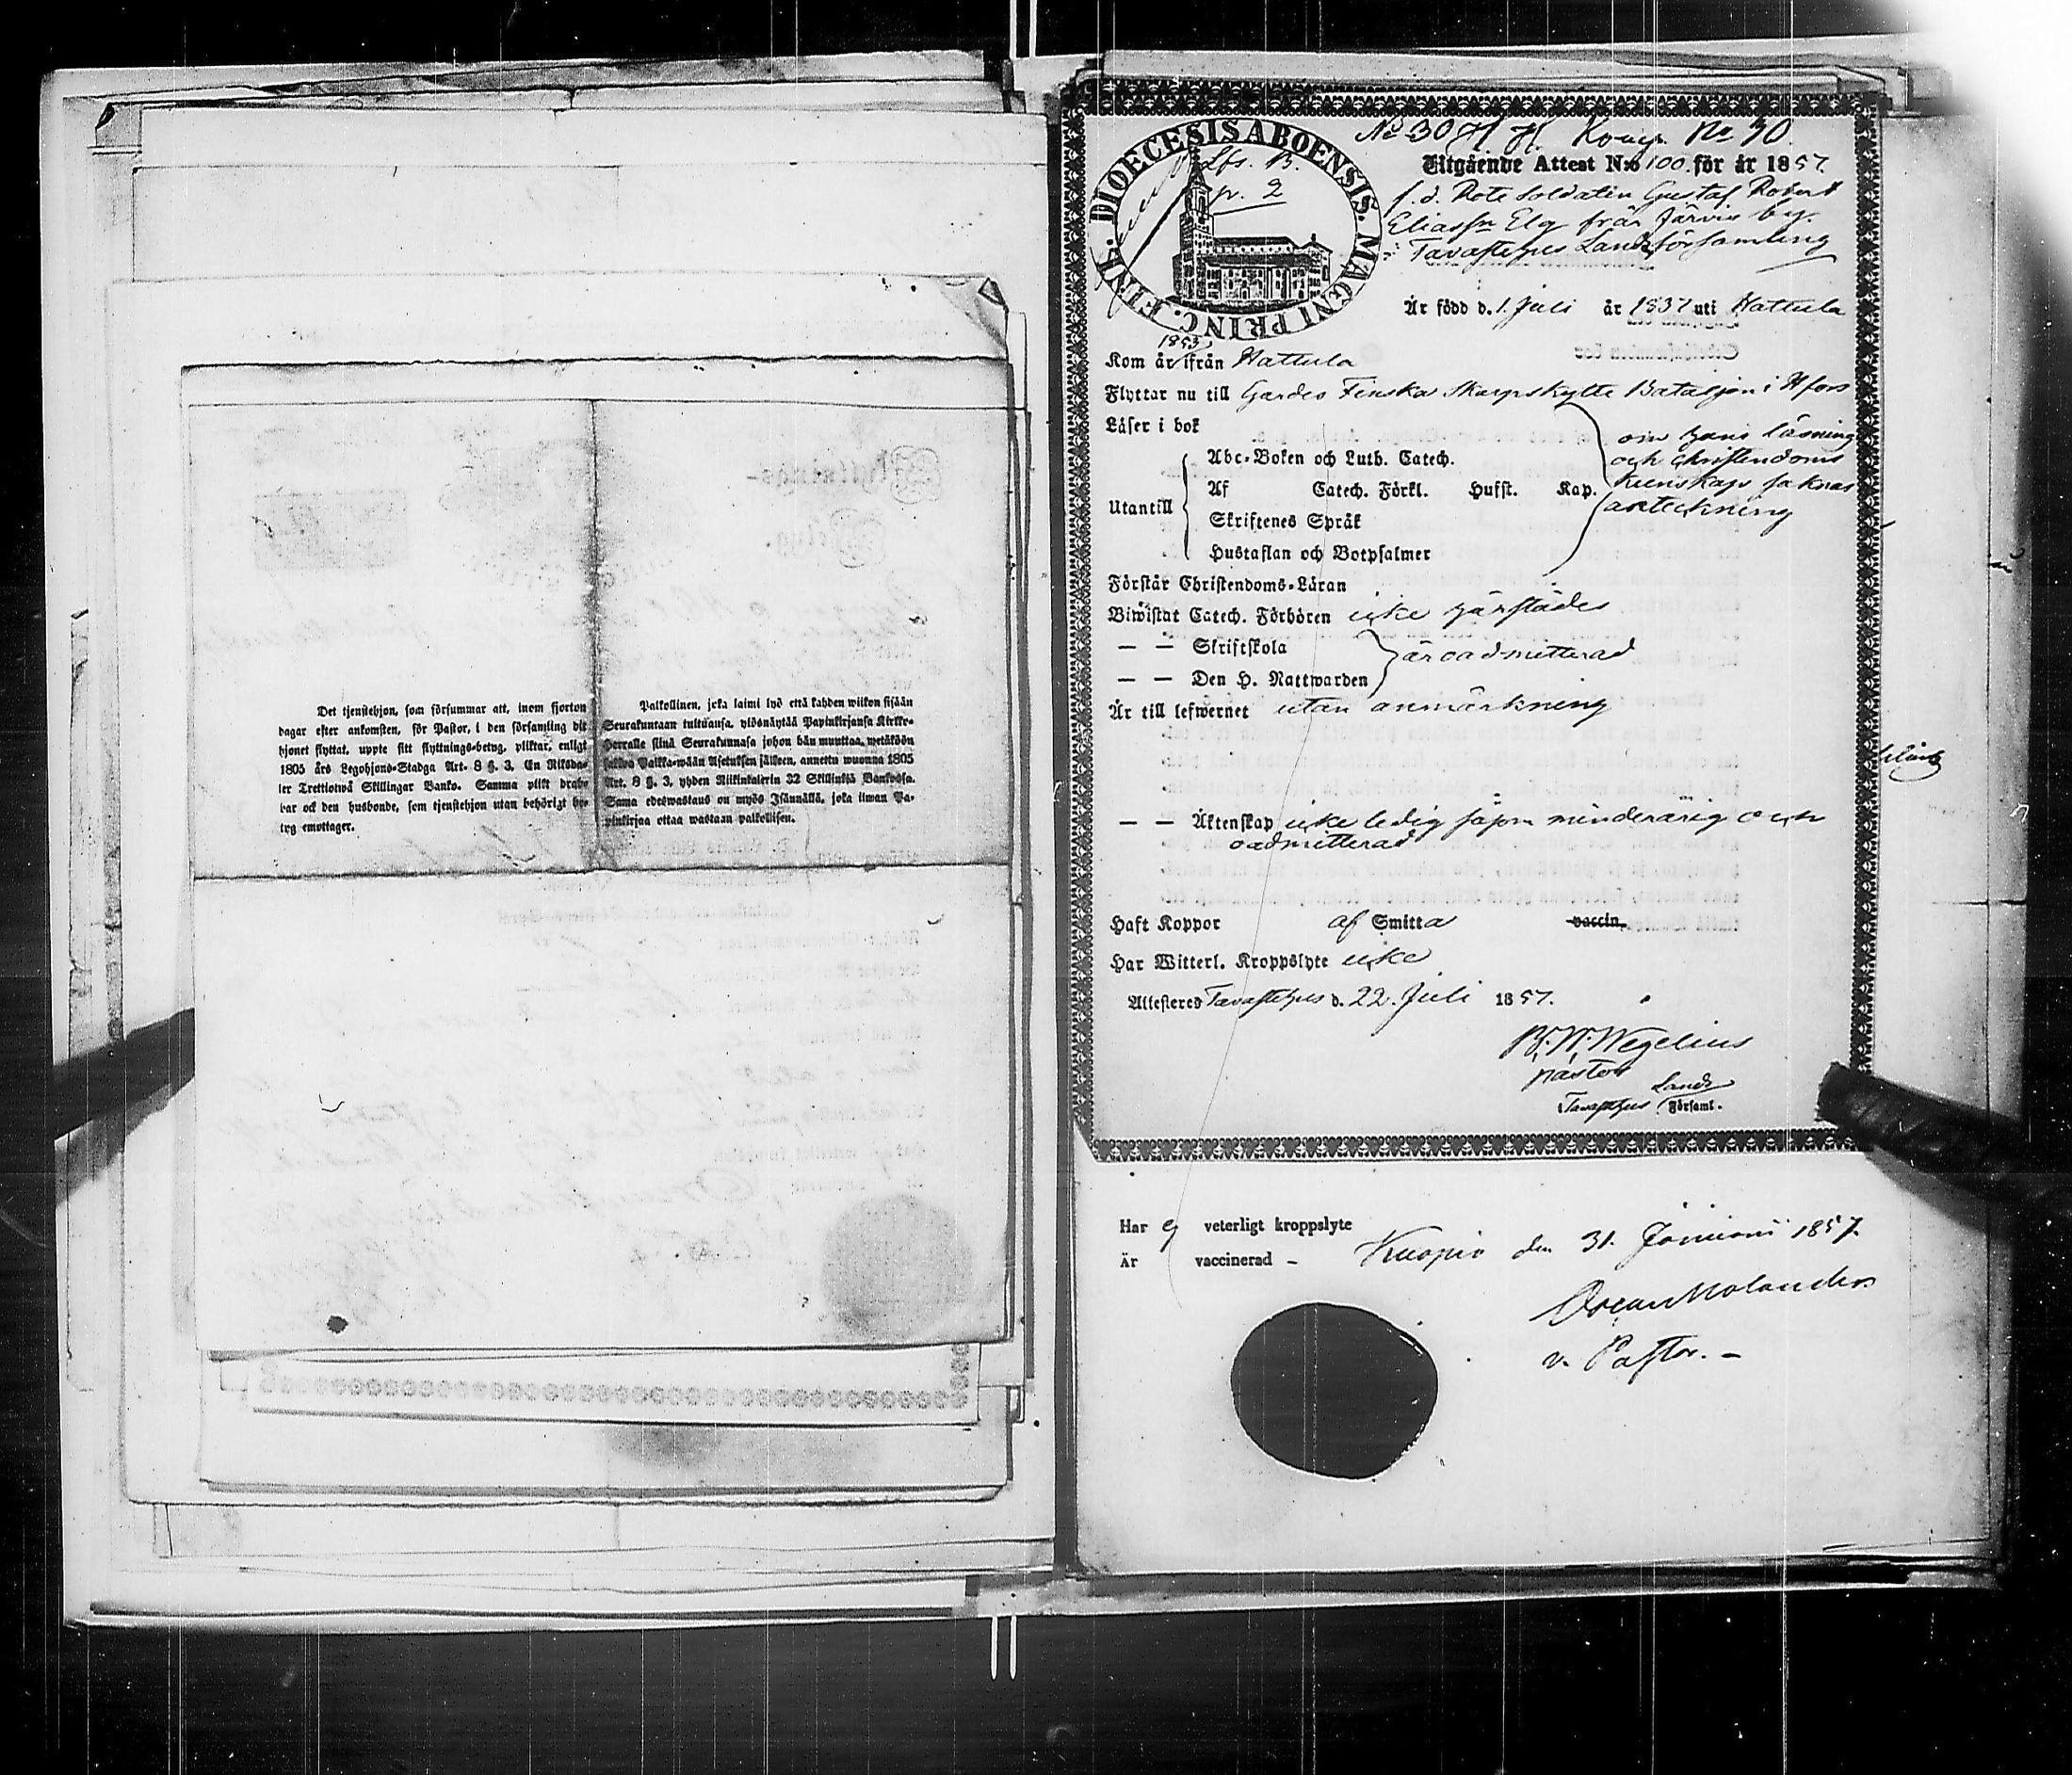 Det tjenstehjon, som försummar att, inom fjorton
dagar efter ankomsten, för Pastor, i den församling dit
hjonet flyttat, uppte sitt flyttnings-betyg, pliktar, enligt
1805 års Legohjons-Stadga Art. 8 §. 3. En Riksda-
ler Trettiotwå Skillingar Banko. Samma plikt drab-
bar ock den husbonde, som tjenstehjon utan behörigt be-
tyg emottager.
Palkollinen, joka laimi lyö että kahden wiikon sisään
Seurakuntaan tultuansa, ylösnäyttää Papinkirjansa Kirkko-
herralle siinä Seurakunnasa johon hän muuttaa, wetäköön
sakkoa Palkka-wään Asetuksen jälkeen, annettu wuonna 1805
Art. 8 §. 3, yhden Riikintalerin 32 Skillinkiä Bankossa.
Sama edeswastaus on myös Isännällä, joka ilman Pa-
pinkirjaa ottaa wastaan palkollisen.
No 30 H. H. Komp. No 90
DIOECESIS ABOENSIS. MAGNI PRINC. FINL.
Lfs. B.
p. 2
Utgående Attest N:o 100. för år 1857.
f. d. Rote Soldaten Gustaf Robert
Eliassn Elg från Järvis by.
i Tavastehus Landsförsamling
Är född d. 1. Juli år 1837 uti Hattula
1853
Kom år ifrån Hattula
Flyttar nu till Gardes Finska Skarpskytte Bataljon i Hfors
Läser i bok
Abc-Boken och Luth. Catech.
Utantill Af Catech. Förkl. Hufst. Kap.
Skriftenes Språk
Hustaflan och Botpsalmer
om hans läsning
och christendoms
kunskap saknas
anteckning
Förstår Christendoms-Läran
Biwistat Catech. Förhören icke härstädes
— — Skriftskola
är oadmitterad
— — Den H. Nattwarden
Är till lefwernet utan anmärkning
— — Äktenskap icke ledig såsom minderårig och
oadmitterad
Haft Koppor af Smitta vaccin.
Har Witterl. Kroppslyte icke
Attesteres Tavastehus d. 22. Juli 1857.
B. W. Wegelius
pastor
i Tavastehus Lands Församl.
Har ej veterligt kroppslyte
Är vaccinerad –
Kuopio den 31. 1857.
Oscar Molander.
v. Pastor. –